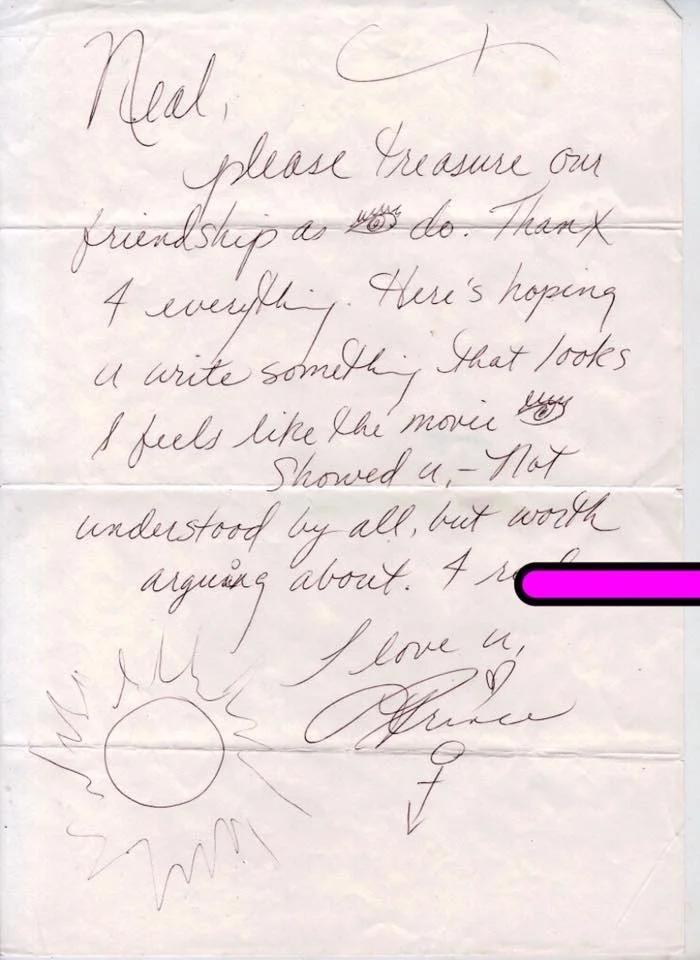 Neal,
please treasure our
friendship as 👁 do. Thanx
4 everything. Here's hoping
u write something that looks
& feels like the movie 👁
showed u, – Not
understood by all, but worth
arguing about. 4
I love u,
Prince